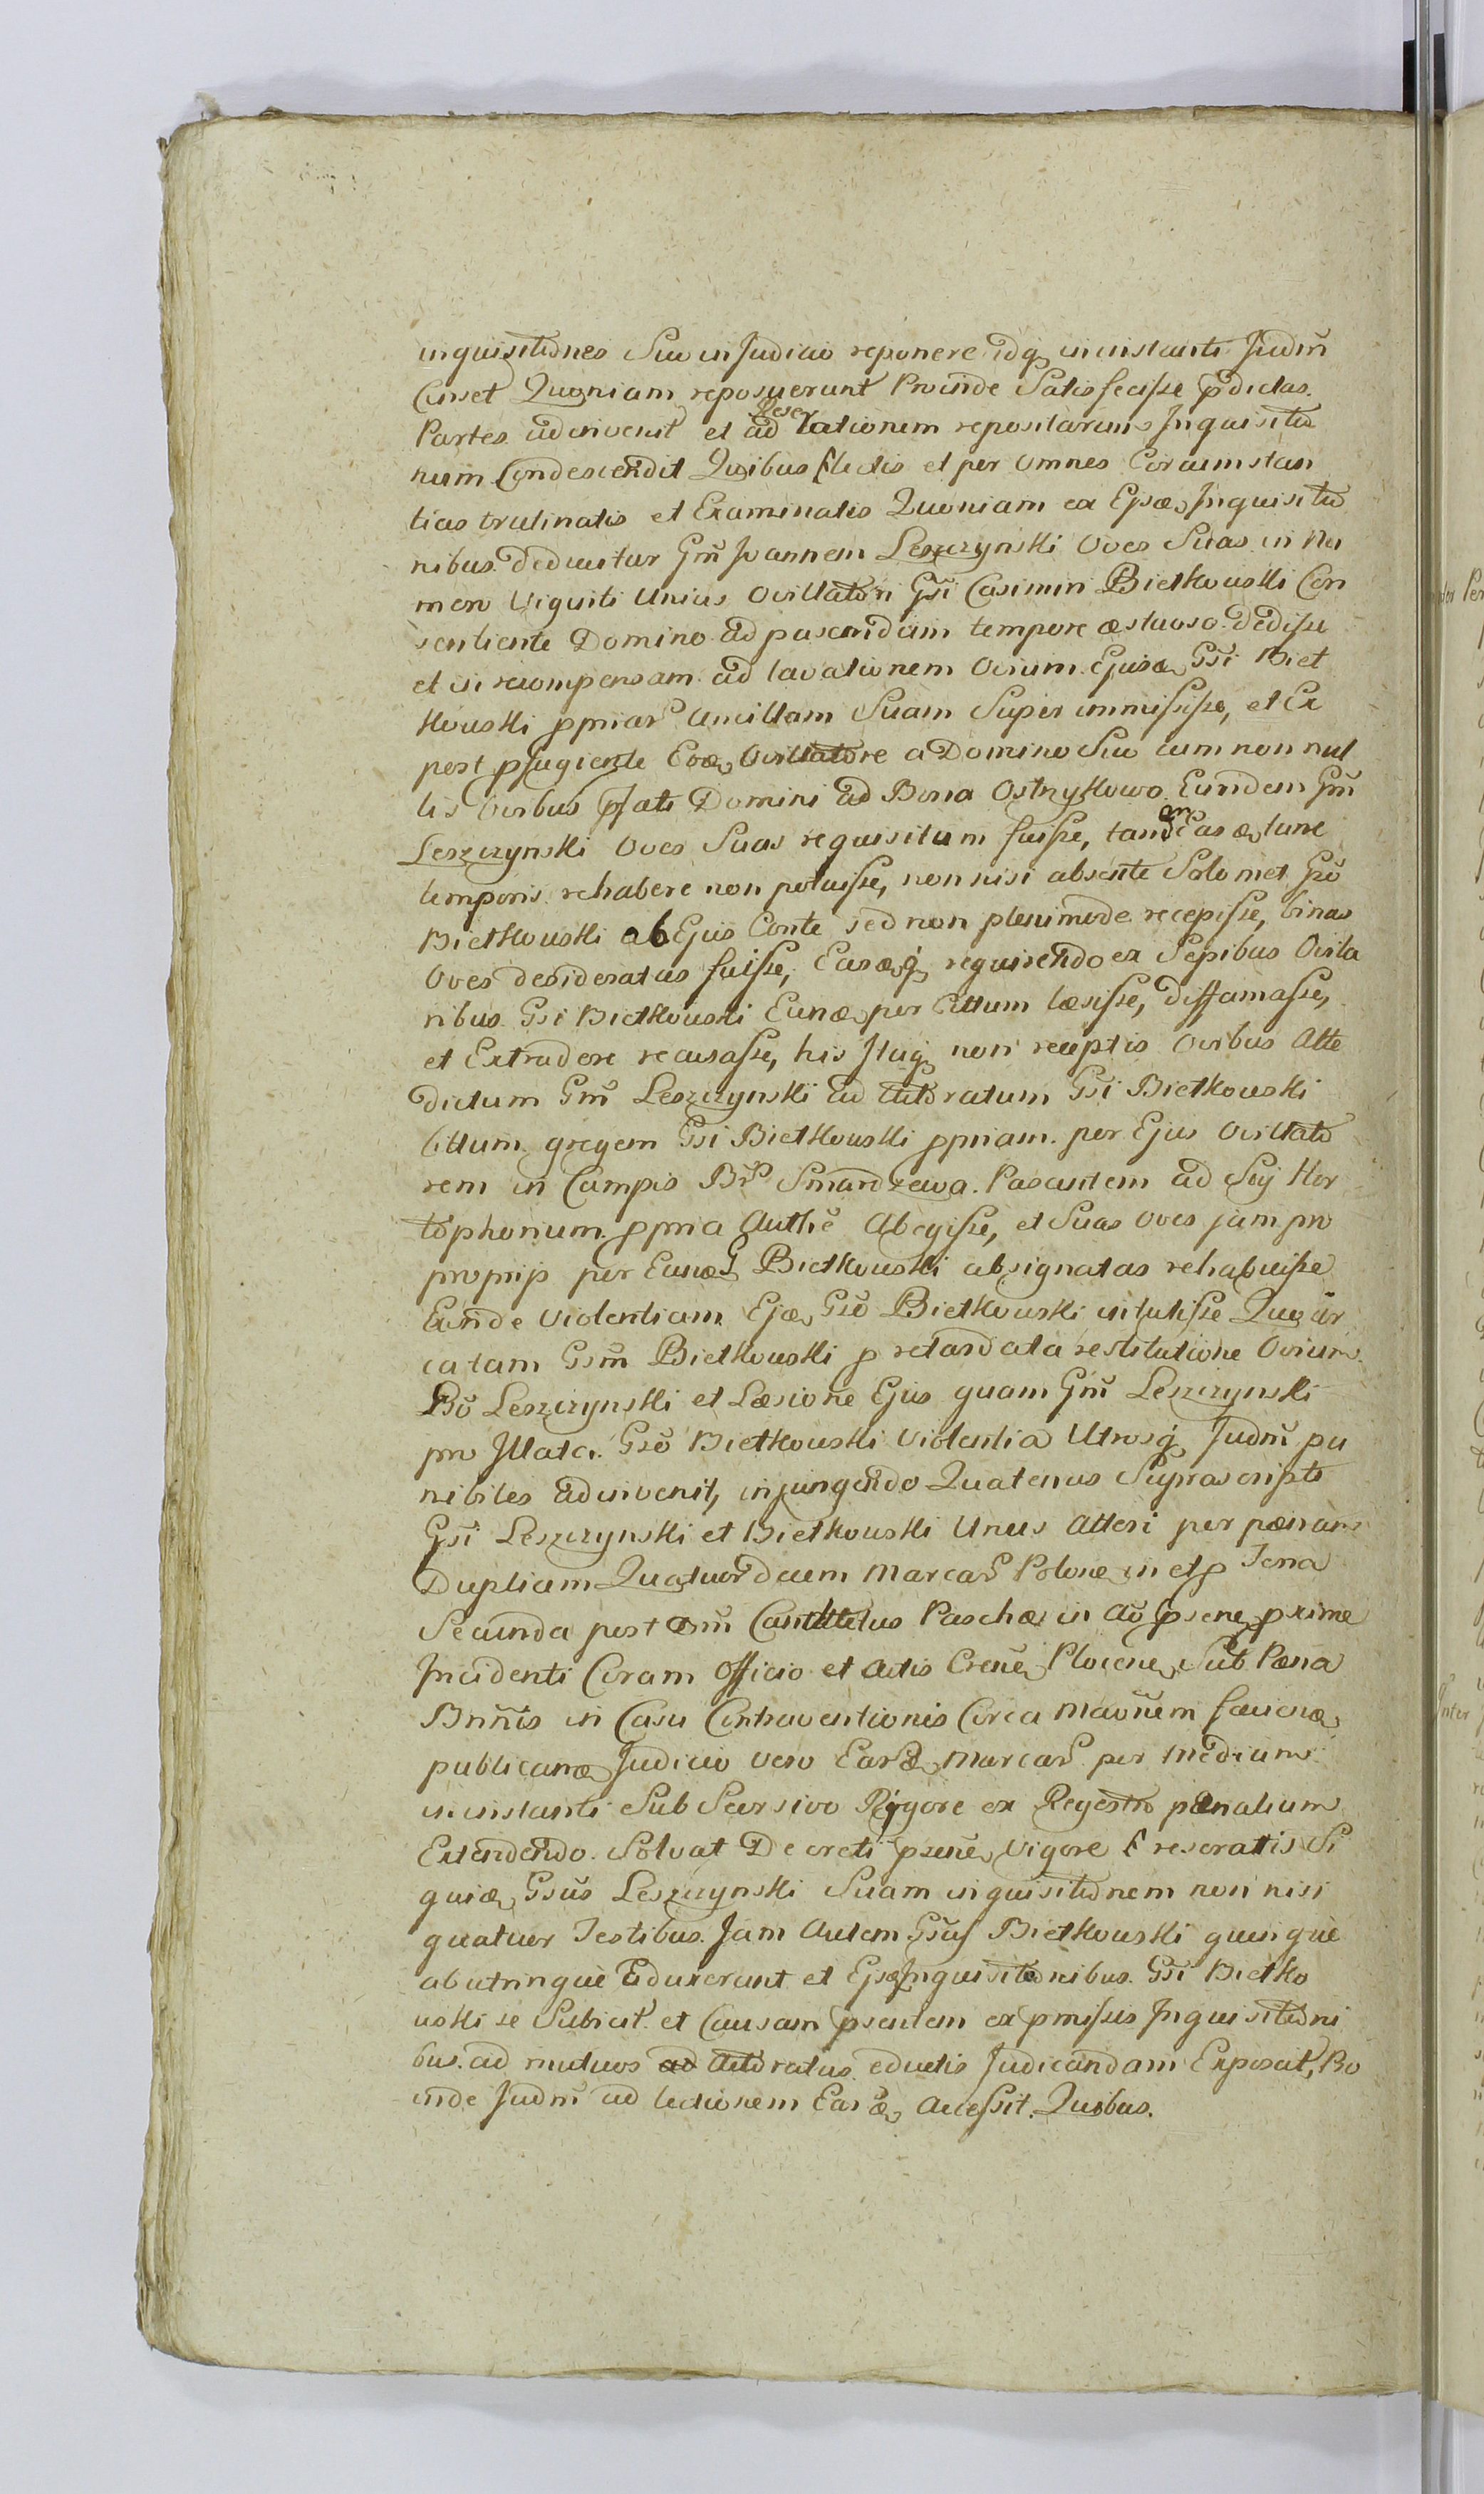 inquisitiones Suo in Judicio reponere idq, in instanti Judm̃
Cum et Quoniam reposuerunt Proinde Satisfecisse p̃dictas
Partes adinvenit et ad Reser
vationem repositarum Inquisitio
num Condescendit Quibus lectis et per omnes Circumstan
tias trutinatis et Examinatis Quoniam ex Ejsdæ Inquisitio
nibus deducitur Gm̃ Joannem Leszczynski Oves Suas in Nu
mero Viginti Unius Ovillatori Gsi Casimiri Bietkowski Con
sentiente Domino ad pascendam tempore æstuoso dedisse
et in recompensam ad lavationem Ovium Ejusdæ Gsi Biet
kowski ppriar̃ Ancillam Suam Super immisisse, et Ex
post pfugiente Eodæ Ovillatore a Domino Suo cum non nul
lis Ovibus pfati Domini ad Bona Ostrzykowo Eundem Gm̃
Leszczynski Oves Suas requisitum fuisse, tandem
Casdæ tunc
temporis rehabere non potuisse, non nisi absente Solomet Gso
Bietkowski ab Ejus Conte sed non plenimode recepisse, binas
Oves desideratas fuisse, Easdæq, requirendo ex Sepibus Ovila
ribus Gsi Bietkowski Eundæ per Cittum læsisse, diffamasse,
et Extradere recusasse, his Itaq, non receptis Ovibus Atte
dictum Gm̃ Leszczynski ad Actoratum Gsi Bietkowski
Cittum gregem Gsi Bietkowski ppriam per Ejus Ovillato
rem in Campis Br̃ Smardzewa Pascentem ad Sui Hor
tophorium ppria Authe Abegisse, et Suas Oves jam pro
proprijs per Eundæ G Bietkowski absignatas rehabuisse
Exinde violentiam Ejdæ Gso Bietkowski intulisse
catam Gsm̃ Bietkowski p retardata restitutione Ovium
Leszczynski et Læsione Ejus quam Gm̃ Leszczynski
pro Illata Gso Bietkowski Violentia Utrosq, Judm̃ pu
nibiles adinvenit, injungendo Quatenus Suprascripti
Gsi Leszczynski et Bietkowski Unus Alteri per pænam
Duplicem Quatuordecim Marcar̃ Polonæ in et p Feria
Secunda post Dm̃ Cantate Paschæ in Ao psene, pxime
Incidenti Coram Officio et Actis Crene, Plocene, Sub Pæna
Bnñis in Casu Contraventionis Circa Maoñem
publicandæ Judicio vero Eardæ, Marcar̃ per Medium
in instanti Sub Scersivo Rigore ex Regestro pænalium
Extendendo Solvat Decreti psene, Vigore reseratis Si
quidæ, Gsus Leszczynski Suam inquisitionem non nisi
quatuor Testibus Jam Autem Gsus Bietkowski quinque
ab utrinque Eduxerunt et Ejsdæ Inquisitionibus Gsi Bietko
wski se Subicit et Causam psentem ex pmissis Inquisitioni
bus ad mutuos ad Actoratus eductis Judicandam Exposcit, Pro
inde Judm̃ ad lectionem Eardæ, Accessit. Quibus.